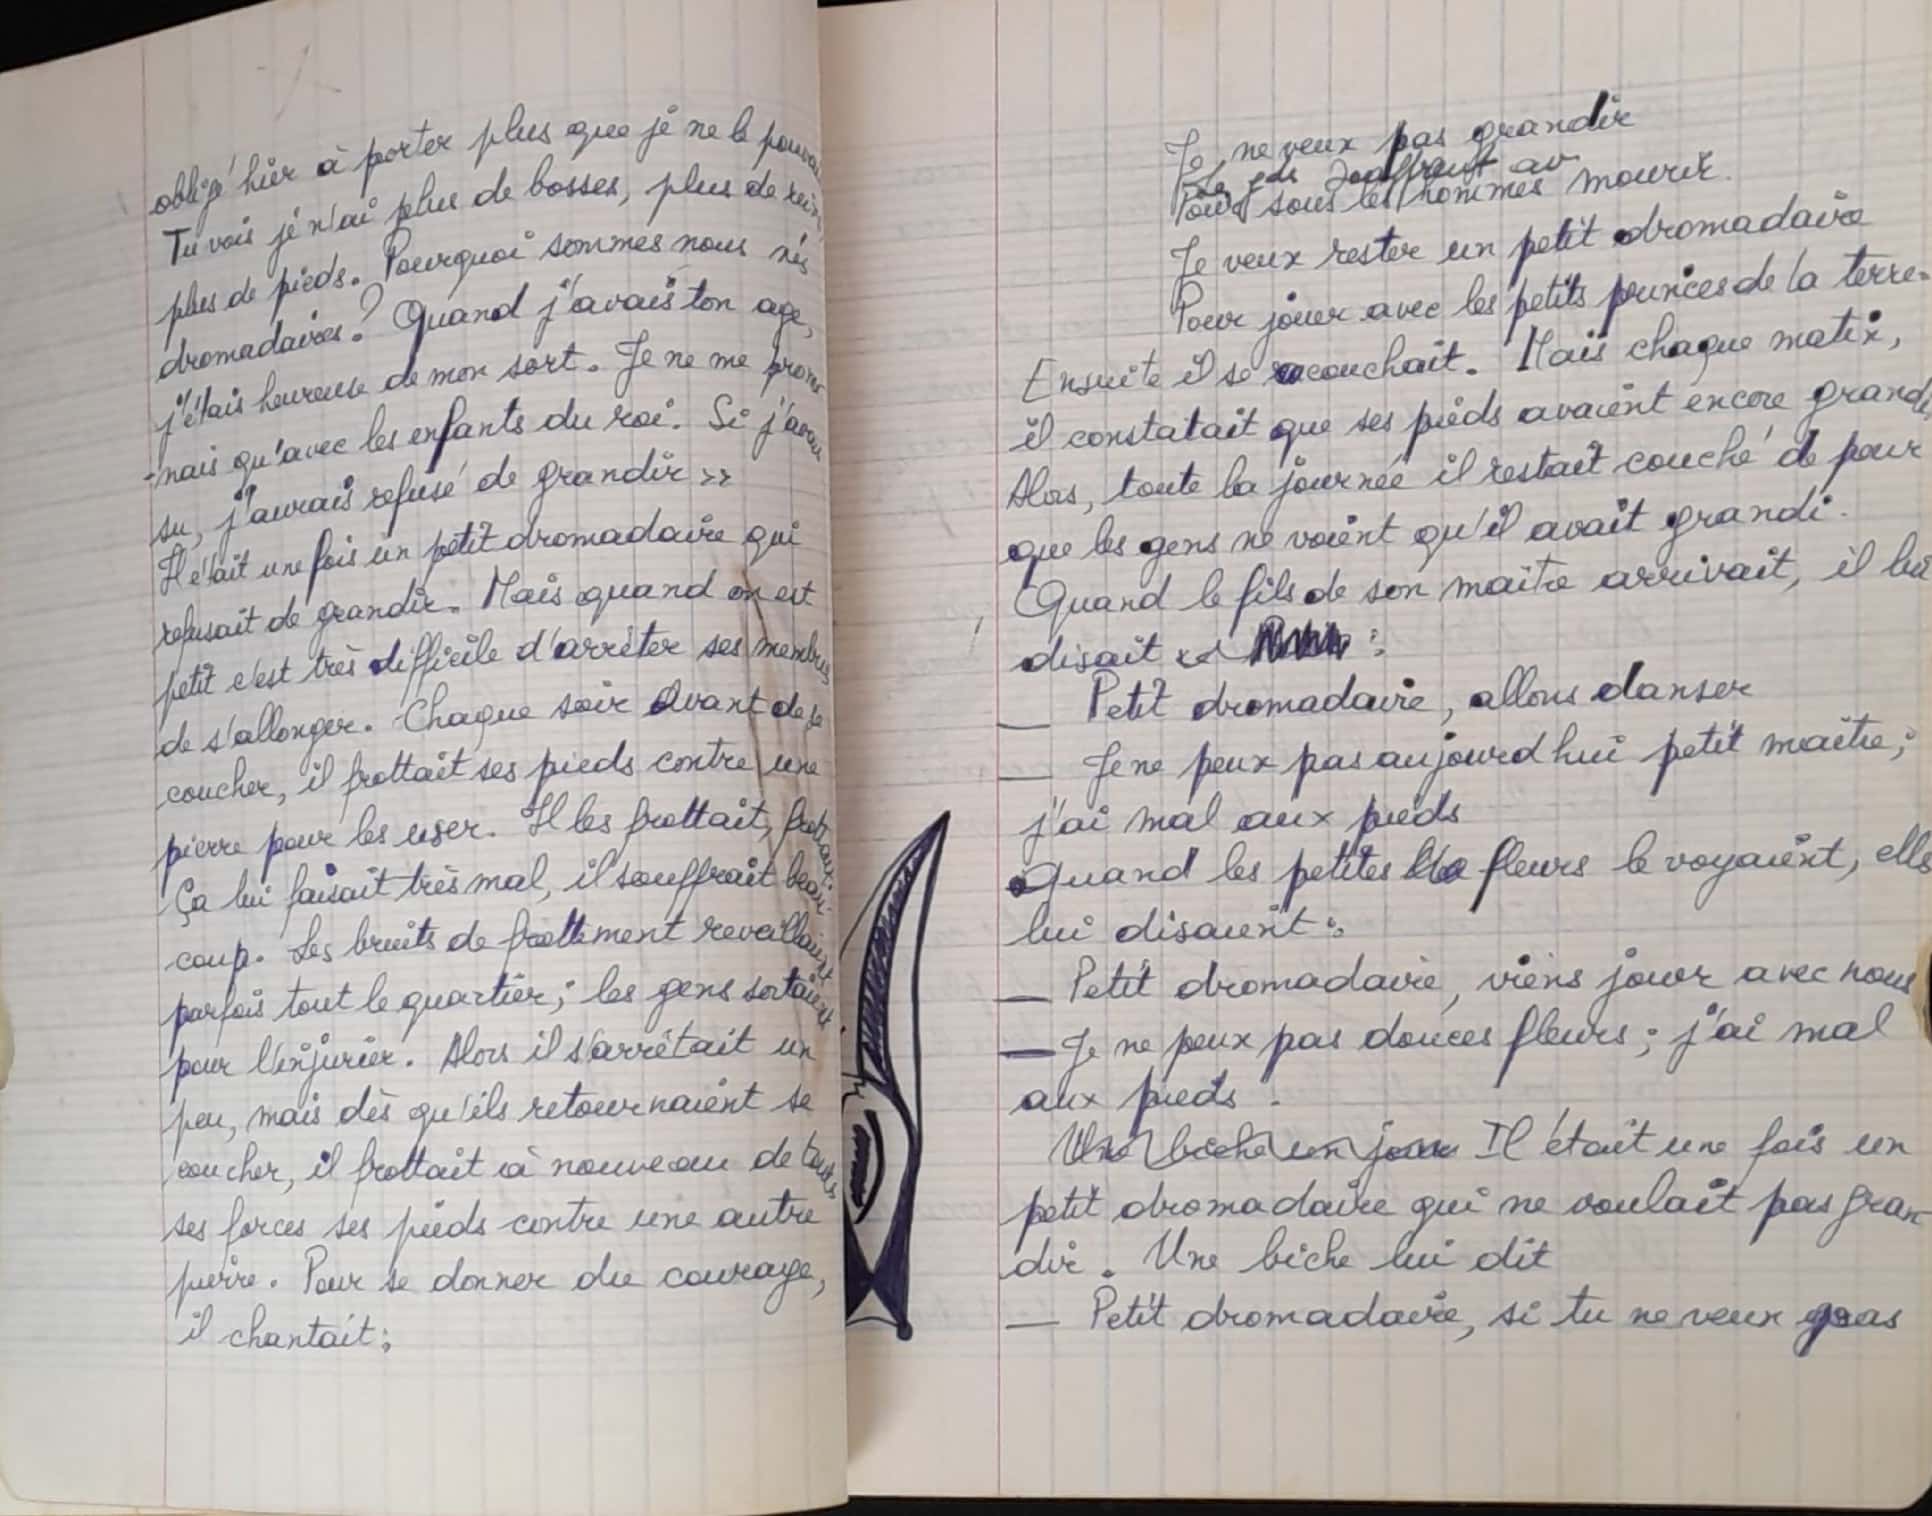 obligé hier à porter plus que je ne le pouvai
Tu vois je n'ai plus de bosses, plus de rein,
plus de pieds. Pourquoi sommes nous nés
dromadaires? Quand j'avais ton age,
j'étais heureuse de mon sort. Je ne me prome
-nais qu'avec les enfants du roi. Si j'avais
su, j'aurais refusé de grandir >>
Il était une fois un petit dromadaire qui
refusait de grandir. Mais quand on est
petit c'est très difficile d'arrêter ses membres
de s'allonger. Chaque soir avant de se
coucher, il frottait ses pieds contre une
pierre pour les user. Il les frottait, frottait.
Ça lui faisait très mal, il souffrait beau
coup. Les bruits de frottement reveillaient
parfois tout le quartier; les gens sortaient
pour l'injurier. Alors il s'arrêtait un
peu, mais dès qu'ils retournaient se
coucher, il frottait à nouveau de toutes
ses forces ses pieds contre une autre
pierre. Pour se donner du courage,
il chantait:
Je ne veux pas grandir
Pour sous les hommes mourir.
Je veux rester un petit dromadaire
Pour jouer avec les petits princes de la terre.
Ensuite il se recouchait. Mais chaque matin,
il constatait que ses pieds avaient encore grandi
Alors, toute la journée il restait couché de peur
que les gens ne voient qu'il avait grandi.
Quand le fils de son maître arrivait, il lui
disait :
— Petit dromadaire, allons danser
— Je ne peux pas aujourd hui petit maître;
j'ai mal aux pieds
Quand les petites fleurs le voyaient, elles
lui disaient:
— Petit dromadaire, viens jouer avec nous
— Je ne peux pas douces fleurs; j'ai mal
aux pieds.
Une biche un jour Il était une fois un
petit dromadaire qui ne voulait pas gran
dir. Une biche lui dit
— Petit dromadaire, si tu ne veux pas